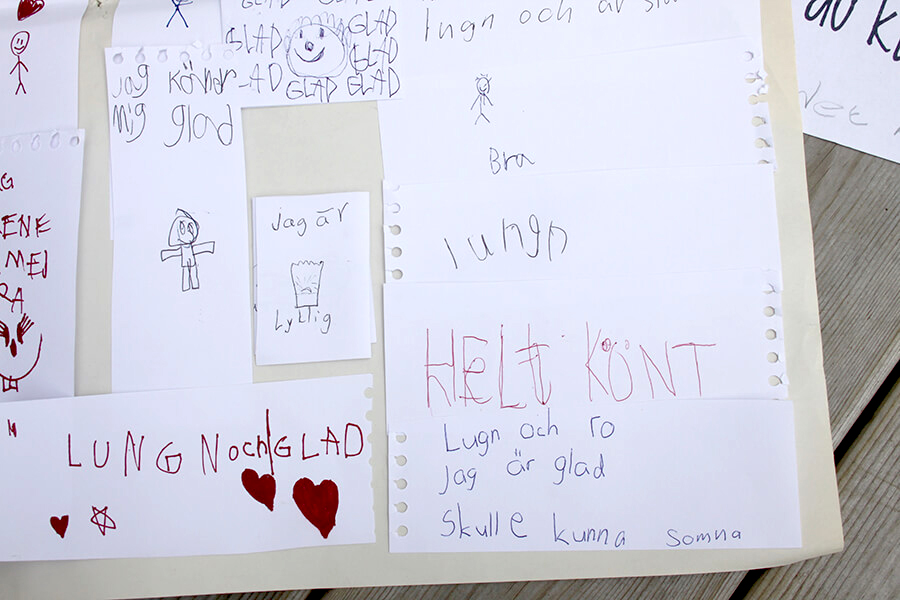 GLAD GLAD
GLAD GLAD
GLAD
LAD GLAD GLAD
lugn och är
du
jag köner
mig glad
Bra
jag är
Lyllig
lungn
ENE
MEJ
RA
HELT KÖNT
LUNGN och GLAD
Lugn och ro
jag är glad
skulle kunna somna